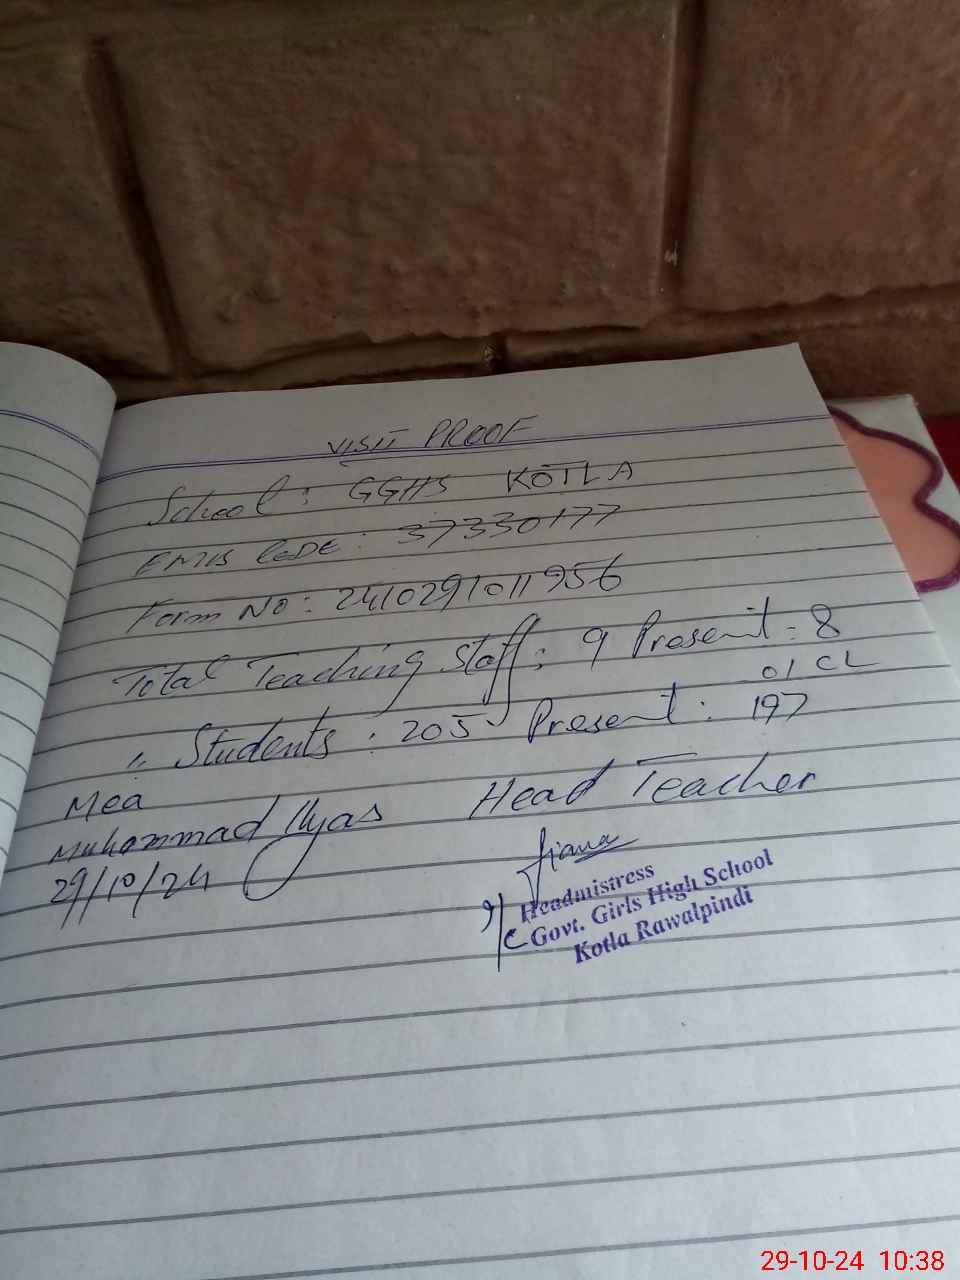 VISIT PROOF
School: GGHS KOTLA
EMIS CODE: 37330177
Form No: 2410291011956
Total Teaching Staff: 9 Present: 8
01 CL
" Students: 205 Present: 197
Mea
Muhammad Ilyas
29/10/24
Head Teacher
I/C
Headmistress
Govt. Girls High School
Kotla Rawalpindi
29-10-24 10:38